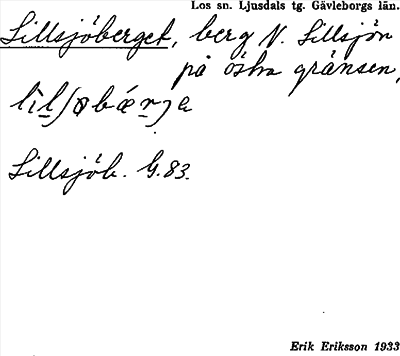 Los sn. Ljusdals tg. Gävleborgs län.
Lillsjöberget, berg N. Lillsjön
på östra gränsen,
Lillsjöb. G.83.
Erik Eriksson 1933